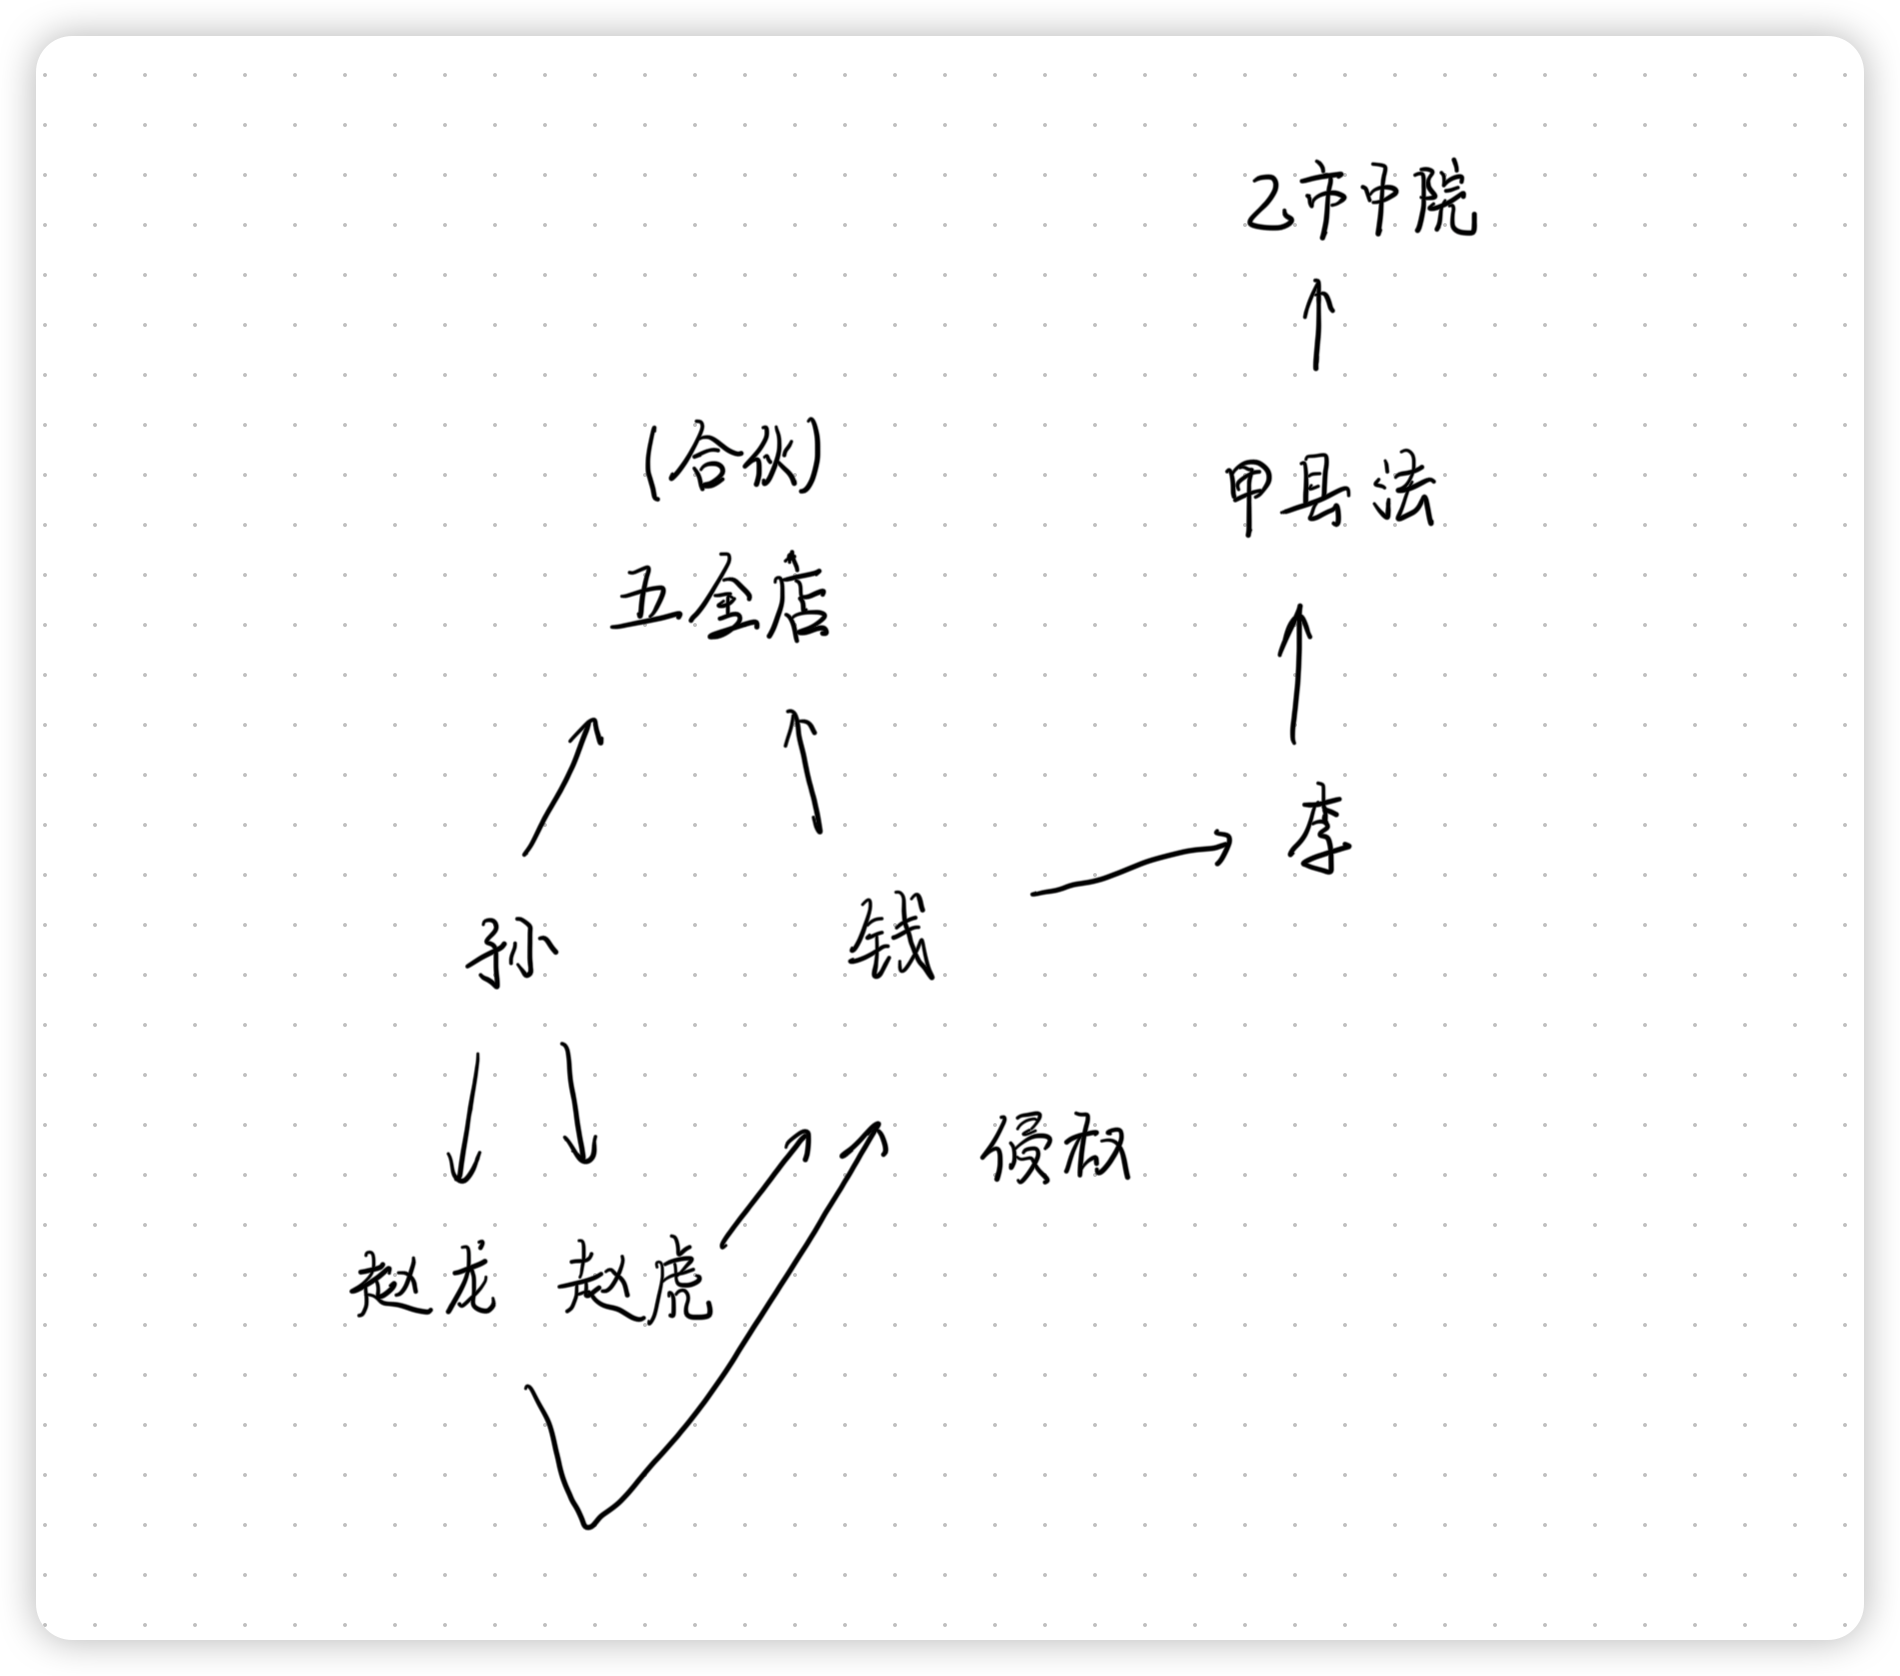 乙市中院
(合伙)
甲县法
五金店
李
孙
钱
侵权
赵龙 赵虎